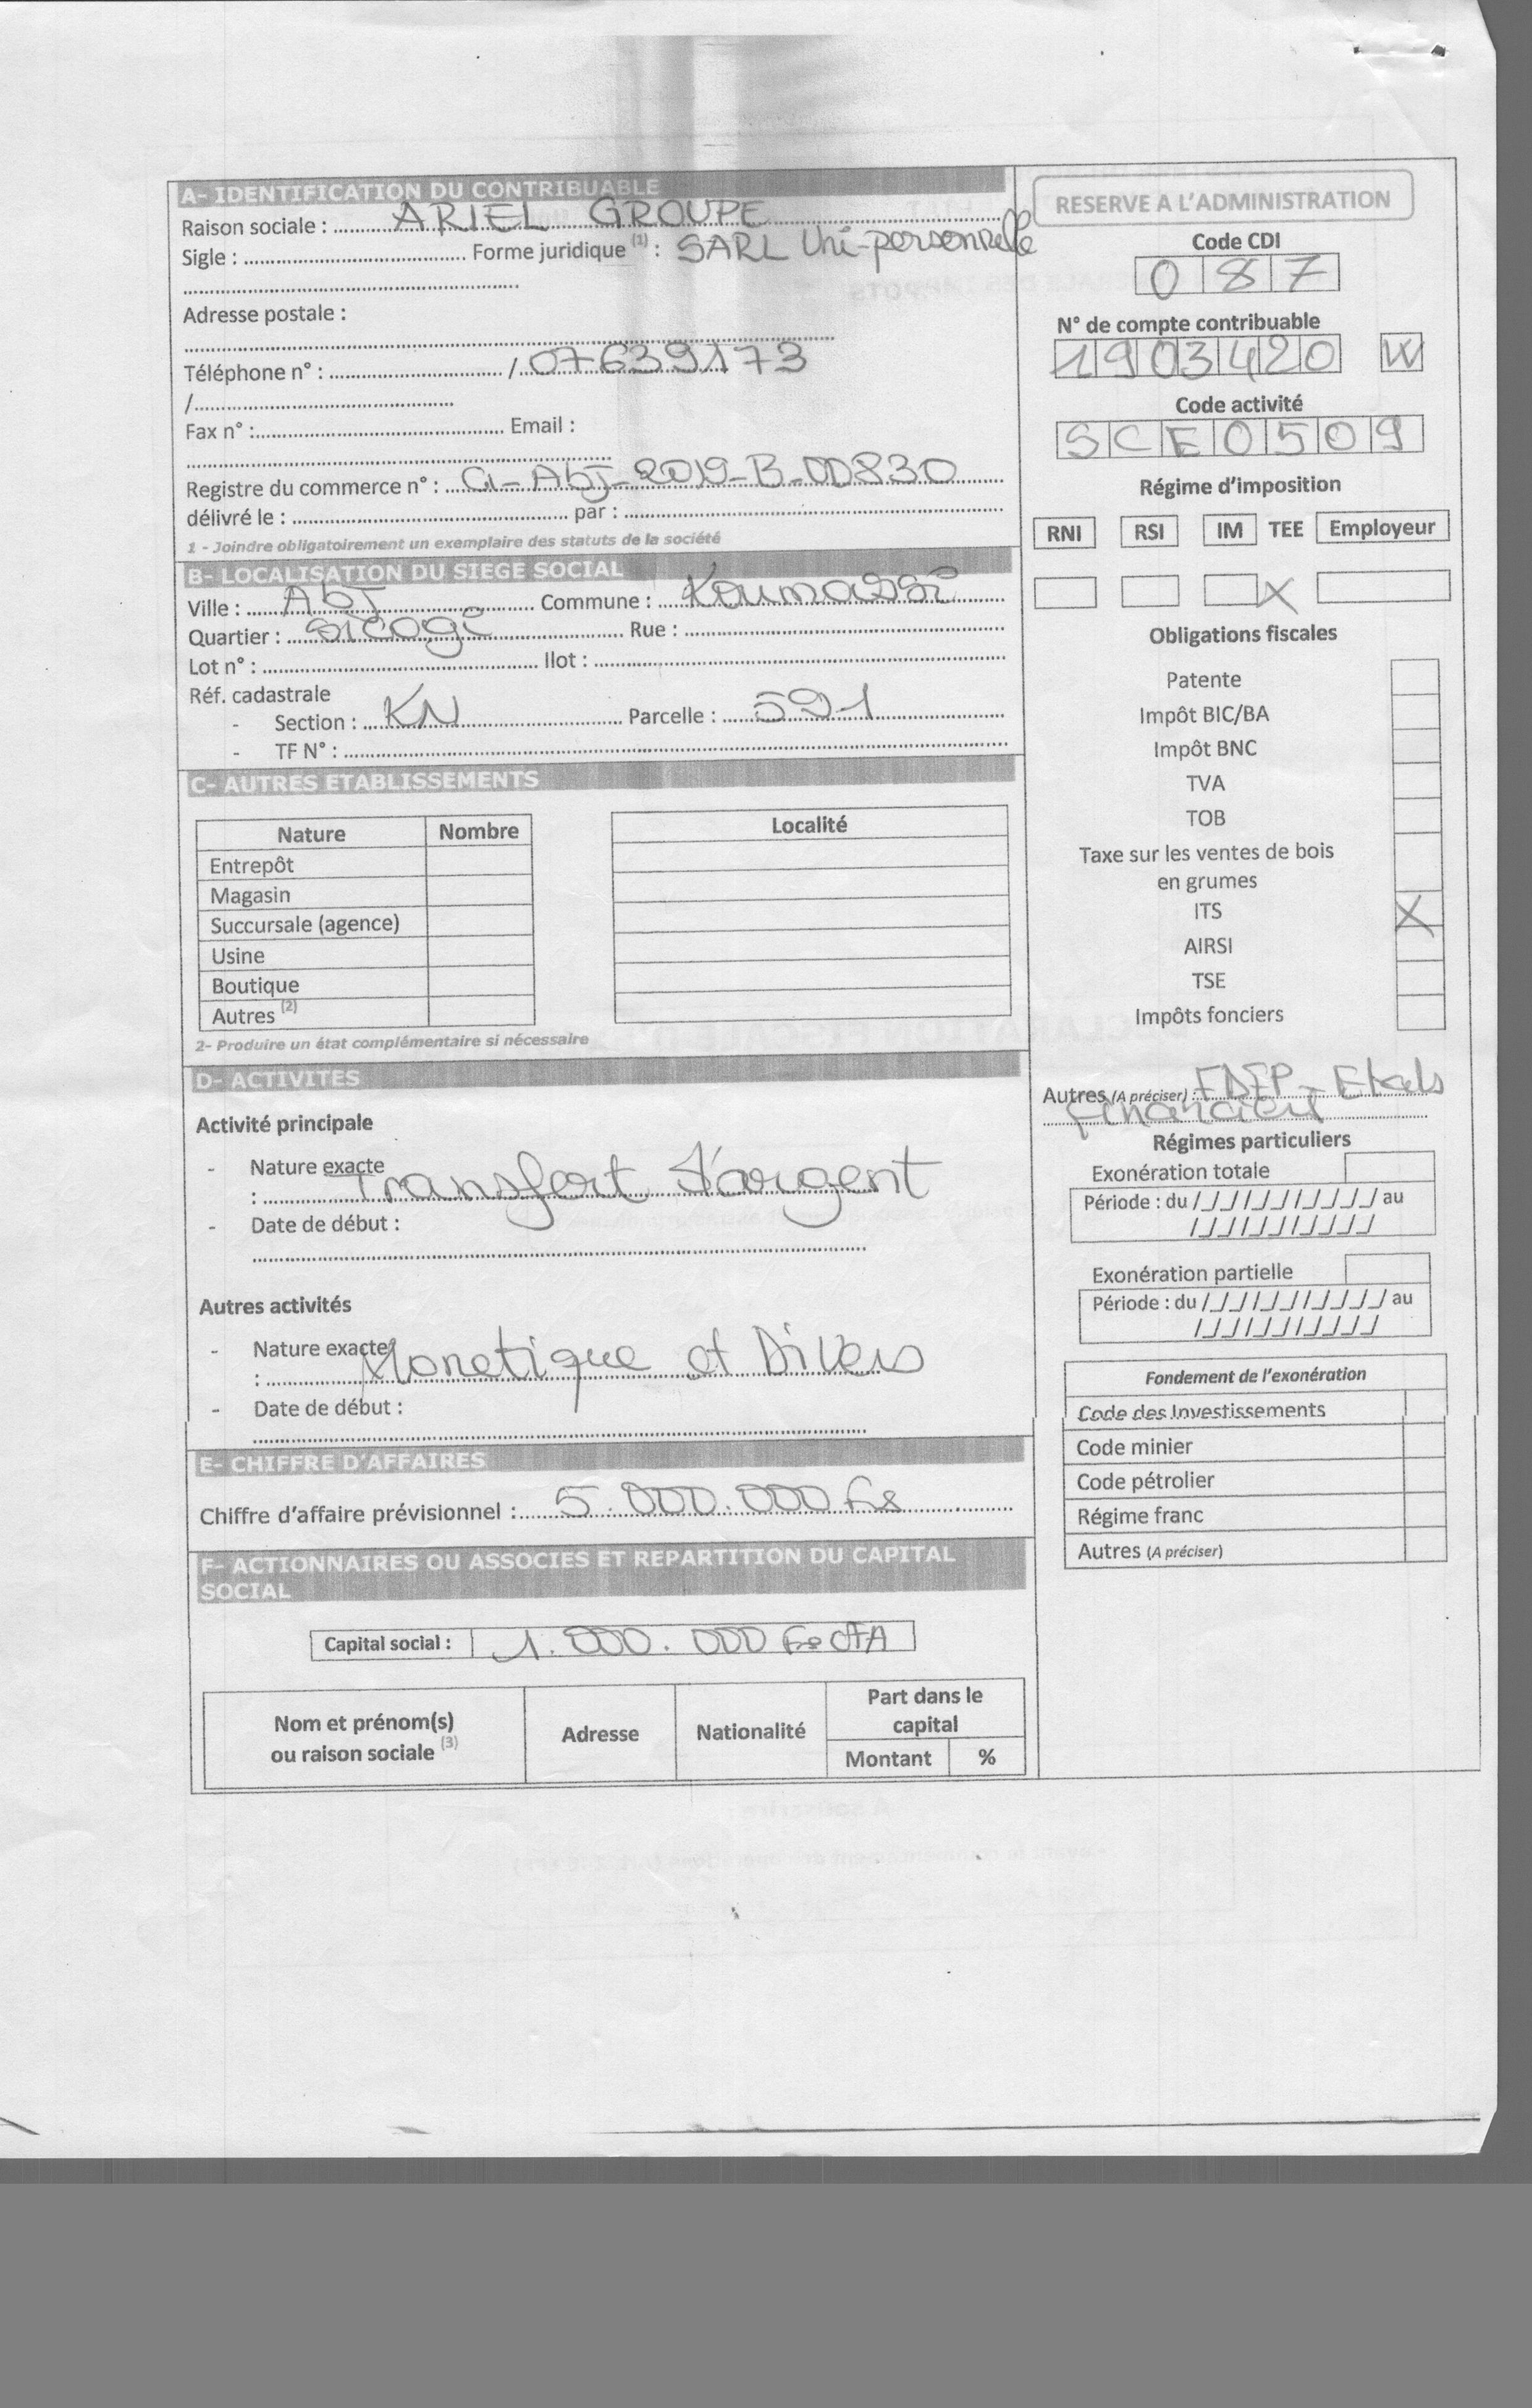 A- IDENTIFICATION DU CONTRIBUABLE
Raison sociale : ARIEL GROUPE
Sigle : Forme juridique (1) : SARL Uni-personnelle
Adresse postale :
Téléphone n° : / 07639173
/
Fax n° : Email :
Registre du commerce n° : CI-AbJ-2019-B-00830
délivré le : par :
1 - Joindre obligatoirement un exemplaire des statuts de la société
B- LOCALISATION DU SIEGE SOCIAL
Ville : AbJ Commune : Koumassi
Quartier : Sicogi Rue :
Lot n° : Ilot :
Réf. cadastrale
- Section : KN Parcelle : 591
- TF N° :
C- AUTRES ETABLISSEMENTS
Nature Nombre Localité
Entrepôt
Magasin
Succursale (agence)
Usine
Boutique
Autres (2)
2- Produire un état complémentaire si nécessaire
D- ACTIVITES
Activité principale
- Nature exacte
: Transfert d'argent
- Date de début :
Autres activités
- Nature exacte
: Monetique et Divers
- Date de début :
E- CHIFFRE D'AFFAIRES
Chiffre d'affaire prévisionnel : 5.000.000 Frs
F- ACTIONNAIRES OU ASSOCIES ET REPARTITION DU CAPITAL
SOCIAL
Capital social : 1.000.000 Frs CFA
Nom et prénom(s)
ou raison sociale (3)
Adresse
Nationalité
Part dans le
capital
Montant %
RESERVE A L'ADMINISTRATION
Code CDI
087
N° de compte contribuable
1903420 W
Code activité
SCE0509
Régime d'imposition
RNI RSI IM TEE Employeur
X
Obligations fiscales
Patente
Impôt BIC/BA
Impôt BNC
TVA
TOB
Taxe sur les ventes de bois
en grumes
ITS X
AIRSI
TSE
Impôts fonciers
Autres (A préciser) : FDFP - Etats
financiers
Régimes particuliers
Exonération totale
Période : du /_/_/ /_/_/ /_/_/_/_/ au
/_/_/ /_/_/ /_/_/_/_/
Exonération partielle
Période : du /_/_/ /_/_/ /_/_/_/_/ au
/_/_/ /_/_/ /_/_/_/_/
Fondement de l'exonération
Code des Investissements
Code minier
Code pétrolier
Régime franc
Autres (A préciser)